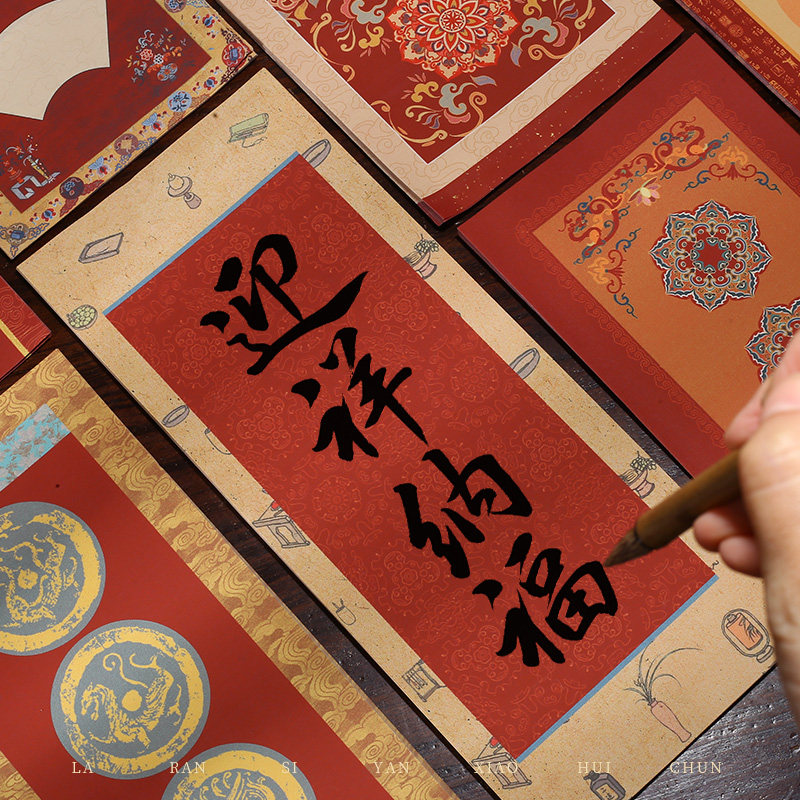 迎祥纳福
LA RAN SI YAN XIAO HUI CHUN